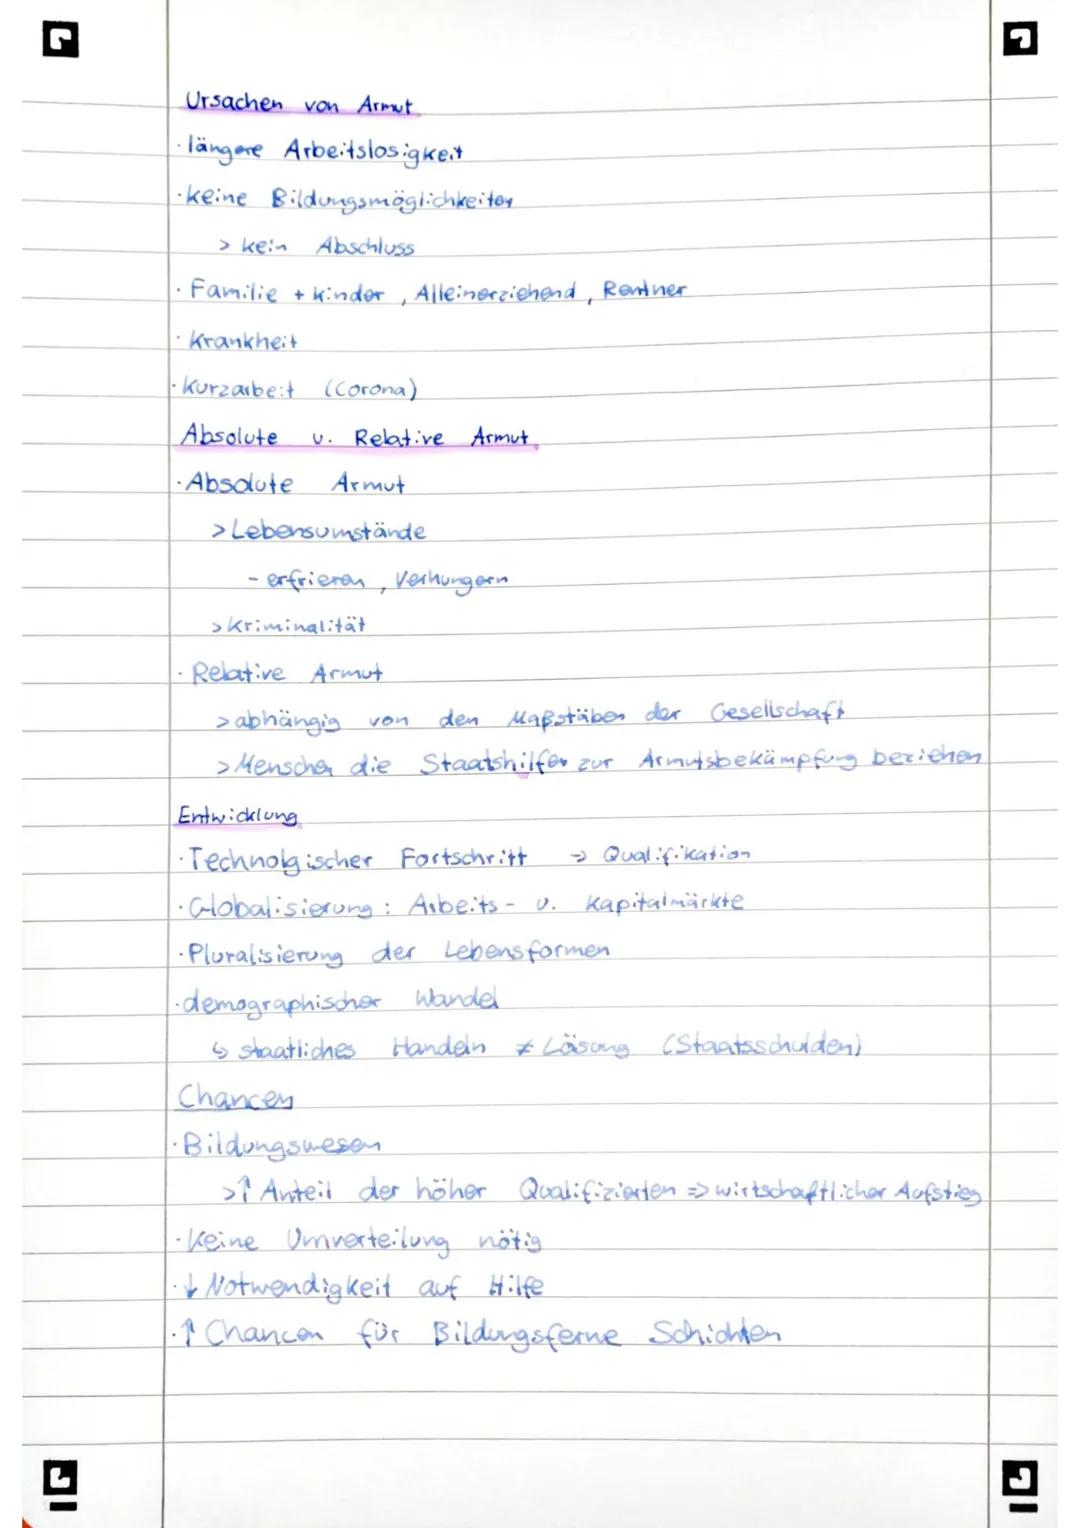 Ursachen von Armut
· längere Arbeitslosigkeit
· keine Bildungsmöglichkeiten
> kein Abschluss
· Familie + Kinder, Alleinerziehend, Rentner
· Krankheit
· Kurzarbeit (Corona)
Absolute u. Relative Armut
· Absolute Armut
> Lebensumstände
- erfrieren, Verhungern
> Kriminalität
· Relative Armut
> abhängig von den Maßstäben der Gesellschaft
> Menschen die Staatshilfen zur Armutsbekämpfung beziehen
Entwicklung
· Technolgischer Fortschritt → Qualifikation
· Globalisierung: Arbeits- u. Kapitalmärkte
· Pluralisierung der Lebensformen
· demographischer Wandel
↳ staatliches Handeln ≠ Lösung (Staatsschulden)
Chancen
· Bildungswesen
> ↑ Anteil der höher Qualifizierten => wirtschaftlicher Aufstieg
· Keine Umverteilung nötig
· ↓ Notwendigkeit auf Hilfe
· ↑ Chancen für Bildungsferne Schichten